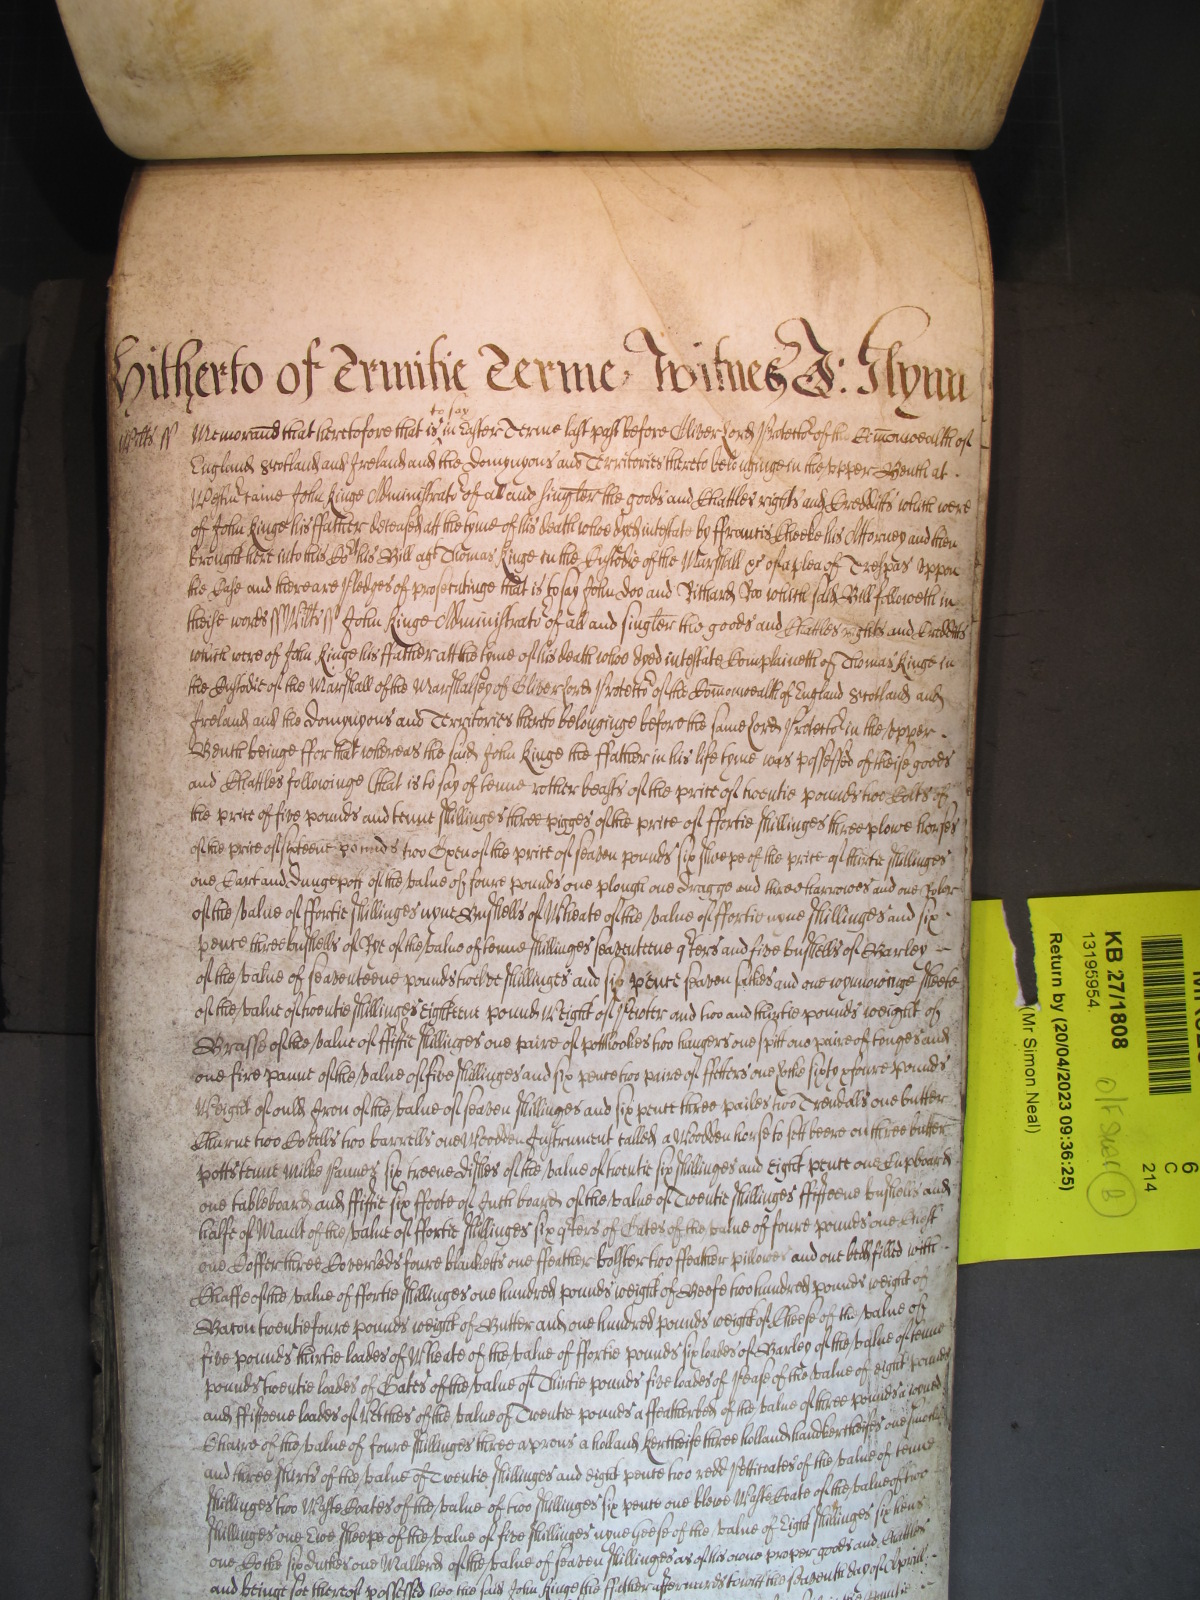 Hitherto of Trinitie Terme Witnes J: Glynn
Wiltes ss Memorand that heretofore that is to say in Easter Terme last past before Oliver Lord Protector of the Comonwealth of
England Scotland and Ireland and the Domynyons and Territories thereto belonginge in the upper Bench at
Westm came John Kinge Administrator of all and singler the goods and Chattles rights and Creddits which were
of John Kinge his ffather deceased att the tyme of his death whoe dyed intestate by ffrancis Cheeke his Attorney and then
brought here into this Cort his Bill agt Thomas Kinge in the Custodie of the Marshall &c of a plea of Trespas uppon
the Case and there are Pledges of prosecutinge that is to say John Doo and Richard Roo which said Bill followeth in
theise words ss Wiltes ss John Kinge Administrator of all and singler the goods and Chattles rights and Creddits
which were of John Kinge his ffather att the tyme of his death whoe dyed intestate Complaineth of Thomas Kinge in
the Custodie of the Marshall of the Marshalsey of Oliver Lord Protector of the Comonwealth of England Scotland and
Ireland and the Domynyons and Territories thereto belonginge before the same Lord Protector in the upper
Bench beinge ffor that whereas the said John Kinge the ffather in his life tyme was possessed of theise goods
and Chattles followinge (that is to say of tenne rother beasts of the price of twentie pounds two Colts of
the price of five pounds and tenne shillinges three pigges of the price of ffortie shillinges three plowe horses
of the price of sixteene pounds two Oxen of the price of seaven pounds six sheepe of the price of thirtie shillinges
one Cart and Dungepott of the value of foure pounds one plough one dragge and three harrowes and one
of the value of ffortie shillinges nyne Bushells of Wheate of the value of ffortie nyne shillinges and six
pence three bushells of Rye of the value of tenne shillinges seaventeene qters and five bushells of Barley
of the value of seaventeene pounds twelve shillinges and six pence seaven sackes and one wynnowinge sheete
of the value of twentie shillinges eighteene pounds weight of Pewter and two and thirtie pounds weight of
Brasse of the value of ffiftie shillinges one paire of potthookes two hangers one spitt one paire of tonges and
one fire panne of the value of five shillinges and six pence two paire of ffetters one Locke sixty foure pounds
Weight of ould Iron of the value of seaven shillinges and six pence three pailes two Trendalls one butter
Churne two Cowells two barrells one Wooden Instrument called a Wooden horse to sett beere on three butter
potts tenne Milke Pannes six treene dishes of the value of twentie six shillinges and eight pence one Cupboard
one tableboard and ffiftie six ffoote of Inch board of the value of Twentie shillinges ffifteene bushells and
halfe of Mault of the value of ffortie shillinges six qters of Oates of the value of foure pounds one Chest
one Coffer three Coverleds foure blanketts one ffeather bolster two ffeather pillowes and one bedd filled with
Chaffe of the value of ffortie shillinges one hundred pounds weight of Beefe two hundred pounds weight of
Bacon twentie foure pounds weight of Butter and one hundred pounds weight of Cheese of the value of
five pounds thirtie loades of Wheate of the value of ffortie pounds six loades of Barley of the value of tenne
pounds twentie loades of Oates of the value of Thirtie pounds five loades of Pease of the value of eight pounds
and ffifteene loades of Vetches of the value of Twentie pounds a ffeatherbed of the value of three pounds a
Chaire of the value of foure shillinges three aprons a holland kercheife three holland handkercheifes one smock
and three shirts of the value of Twentie shillinges and eight pence two redd Petticoates of the value of tenne
shillinges two Wastcoates of the value of two shillinges six pence one blewe Wastcoate of the value of two
shillinges one Ewe sheepe of the value of five shillinges nyne Geese of the value of Eight shillinges six hens
one Cocke six duckes one Mallerd of the value of seaven shillinges as of his owne proper goods and Chattles
and beinge soe thereof possessed hee the said John Kinge the ffather afterwards to witt the seaventh day of Aprill
KB 27/1808
13195954
Return by (20/04/2023 09:36:25)
(Mr Simon Neal)
6
C
214